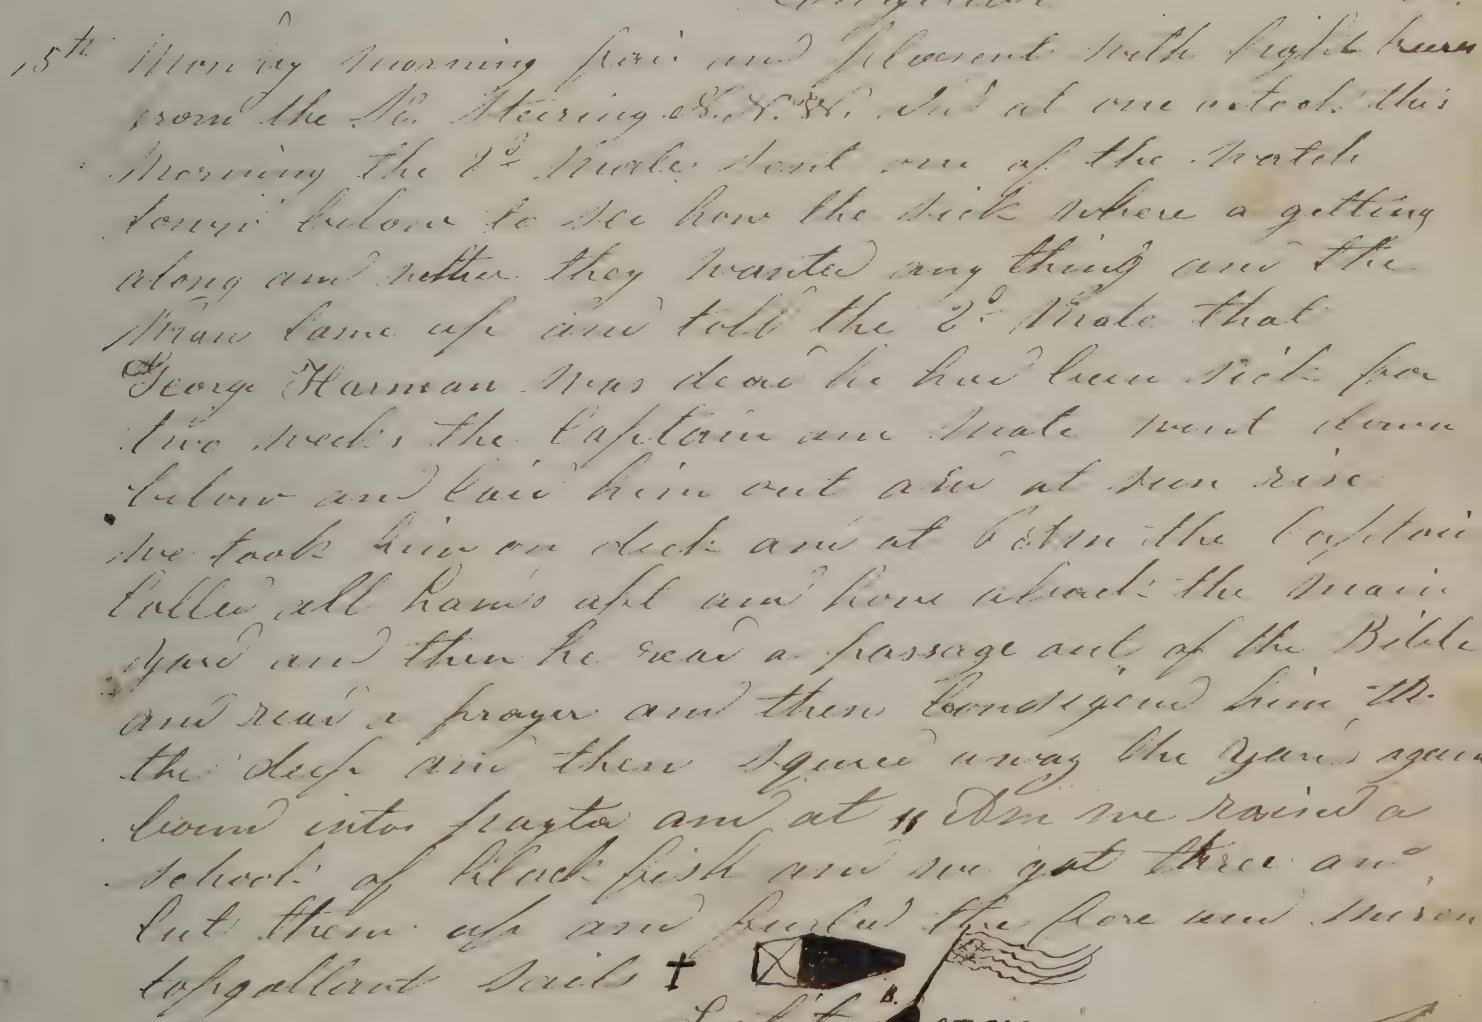 15th Monday morning fair and pleasent with light breeses
from the No. Steering N. N. W. And at one oclock this
morning the 2d Mate sent one of the watch
down below to see how the sick where a getting
along and wether they wanted any thing and the
man came up and told the 2d Mate that
George Harman was dead he had been sick for
two weeks the Captain and Mate went down
below and laid him out and at sun rise
we took him on deck and at the Captain
called all hands aft and hove aback the main
yard and then he read a passage out of the Bible
and read a prayer and then Consigend him to
the deep and then squared away the yards again
bound into payta and at 11 Am we raised a
school of black fish and we got three and
cut them up and furled the fore and mizen
topgallant sails